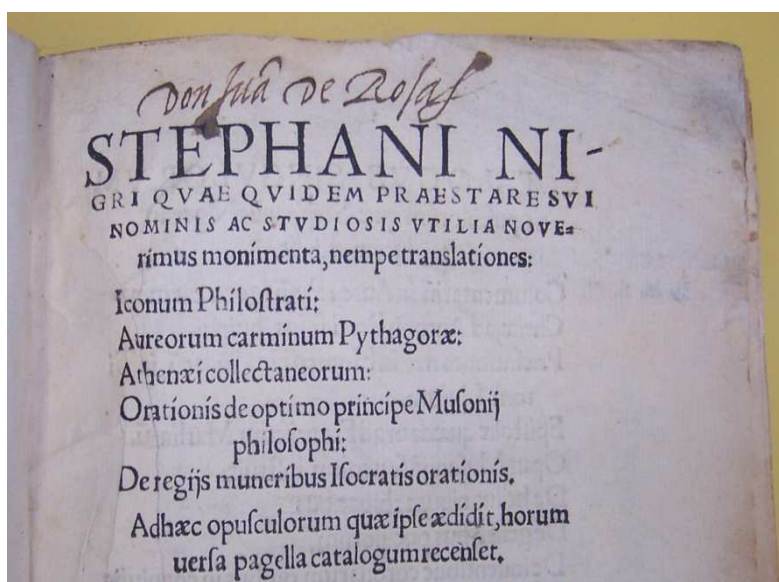 Don Juã De Rosas
STEPHANI NI-
GRI QVAE QVIDEM PRAESTARE SVI
NOMINIS AC STVDIOSIS VTILIA NOVE=
rimus monimenta, nempe translationes:
Iconum Philoſtrati:
Aureorum carminum Pythagoræ:
Athenæi collectaneorum:
Orationis de optimo principe Muſonij
philoſophi:
De regijs muneribus Iſocratis orationis.
Adhæc opuſculorum quæ ipſe ædidit, horum
uerſa pagella catalogum recenſet.